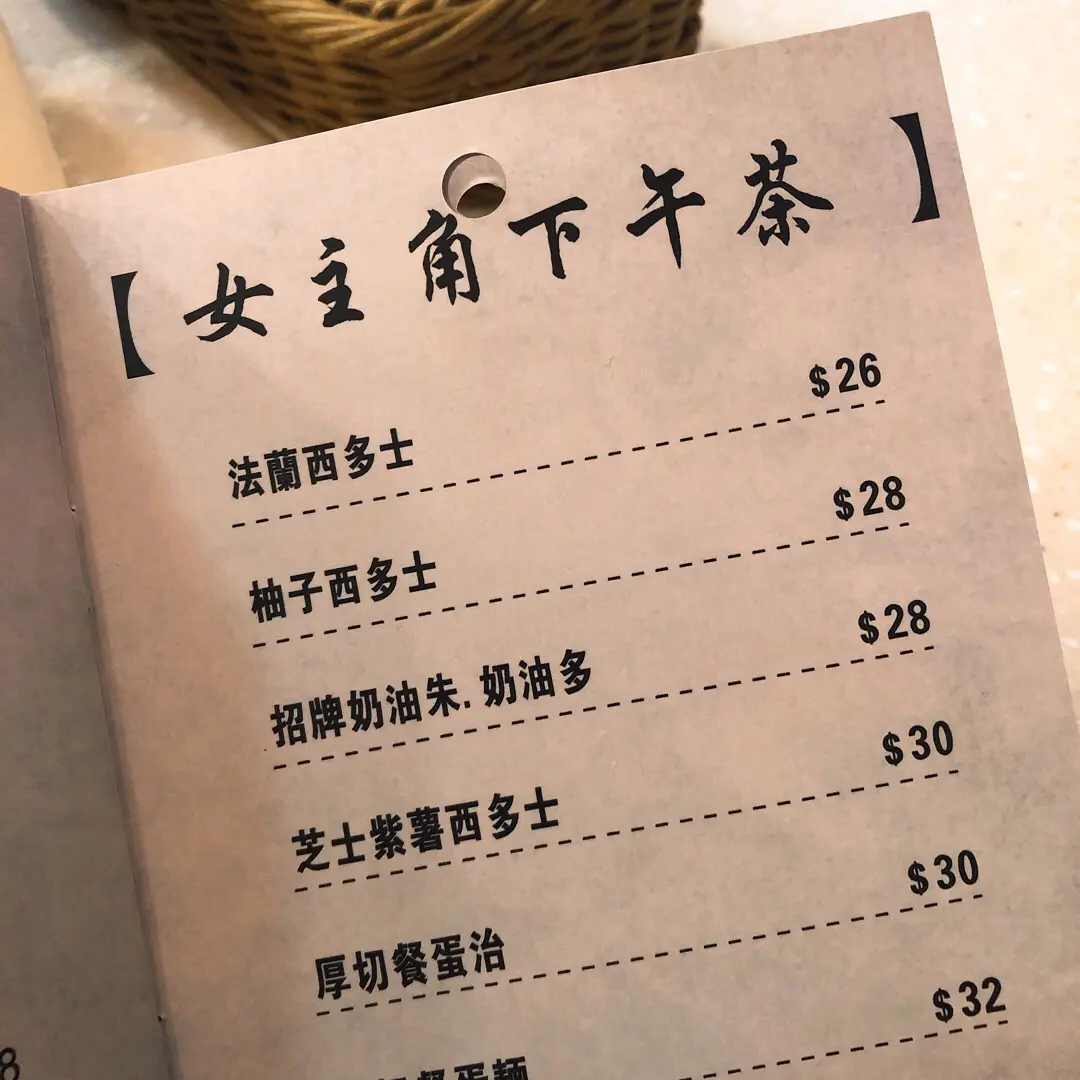 【女主角下午茶】
法蘭西多士 $26
柚子西多士 $28
招牌奶油朱.奶油多 $28
芝士紫薯西多士 $30
厚切餐蛋治 $30
餐蛋麵 $32
8